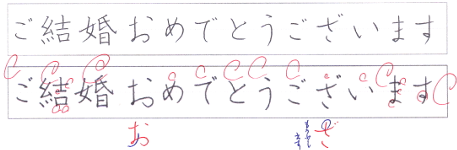 ご結婚おめでとうございます
ご結婚おめでとうございます
お ざ